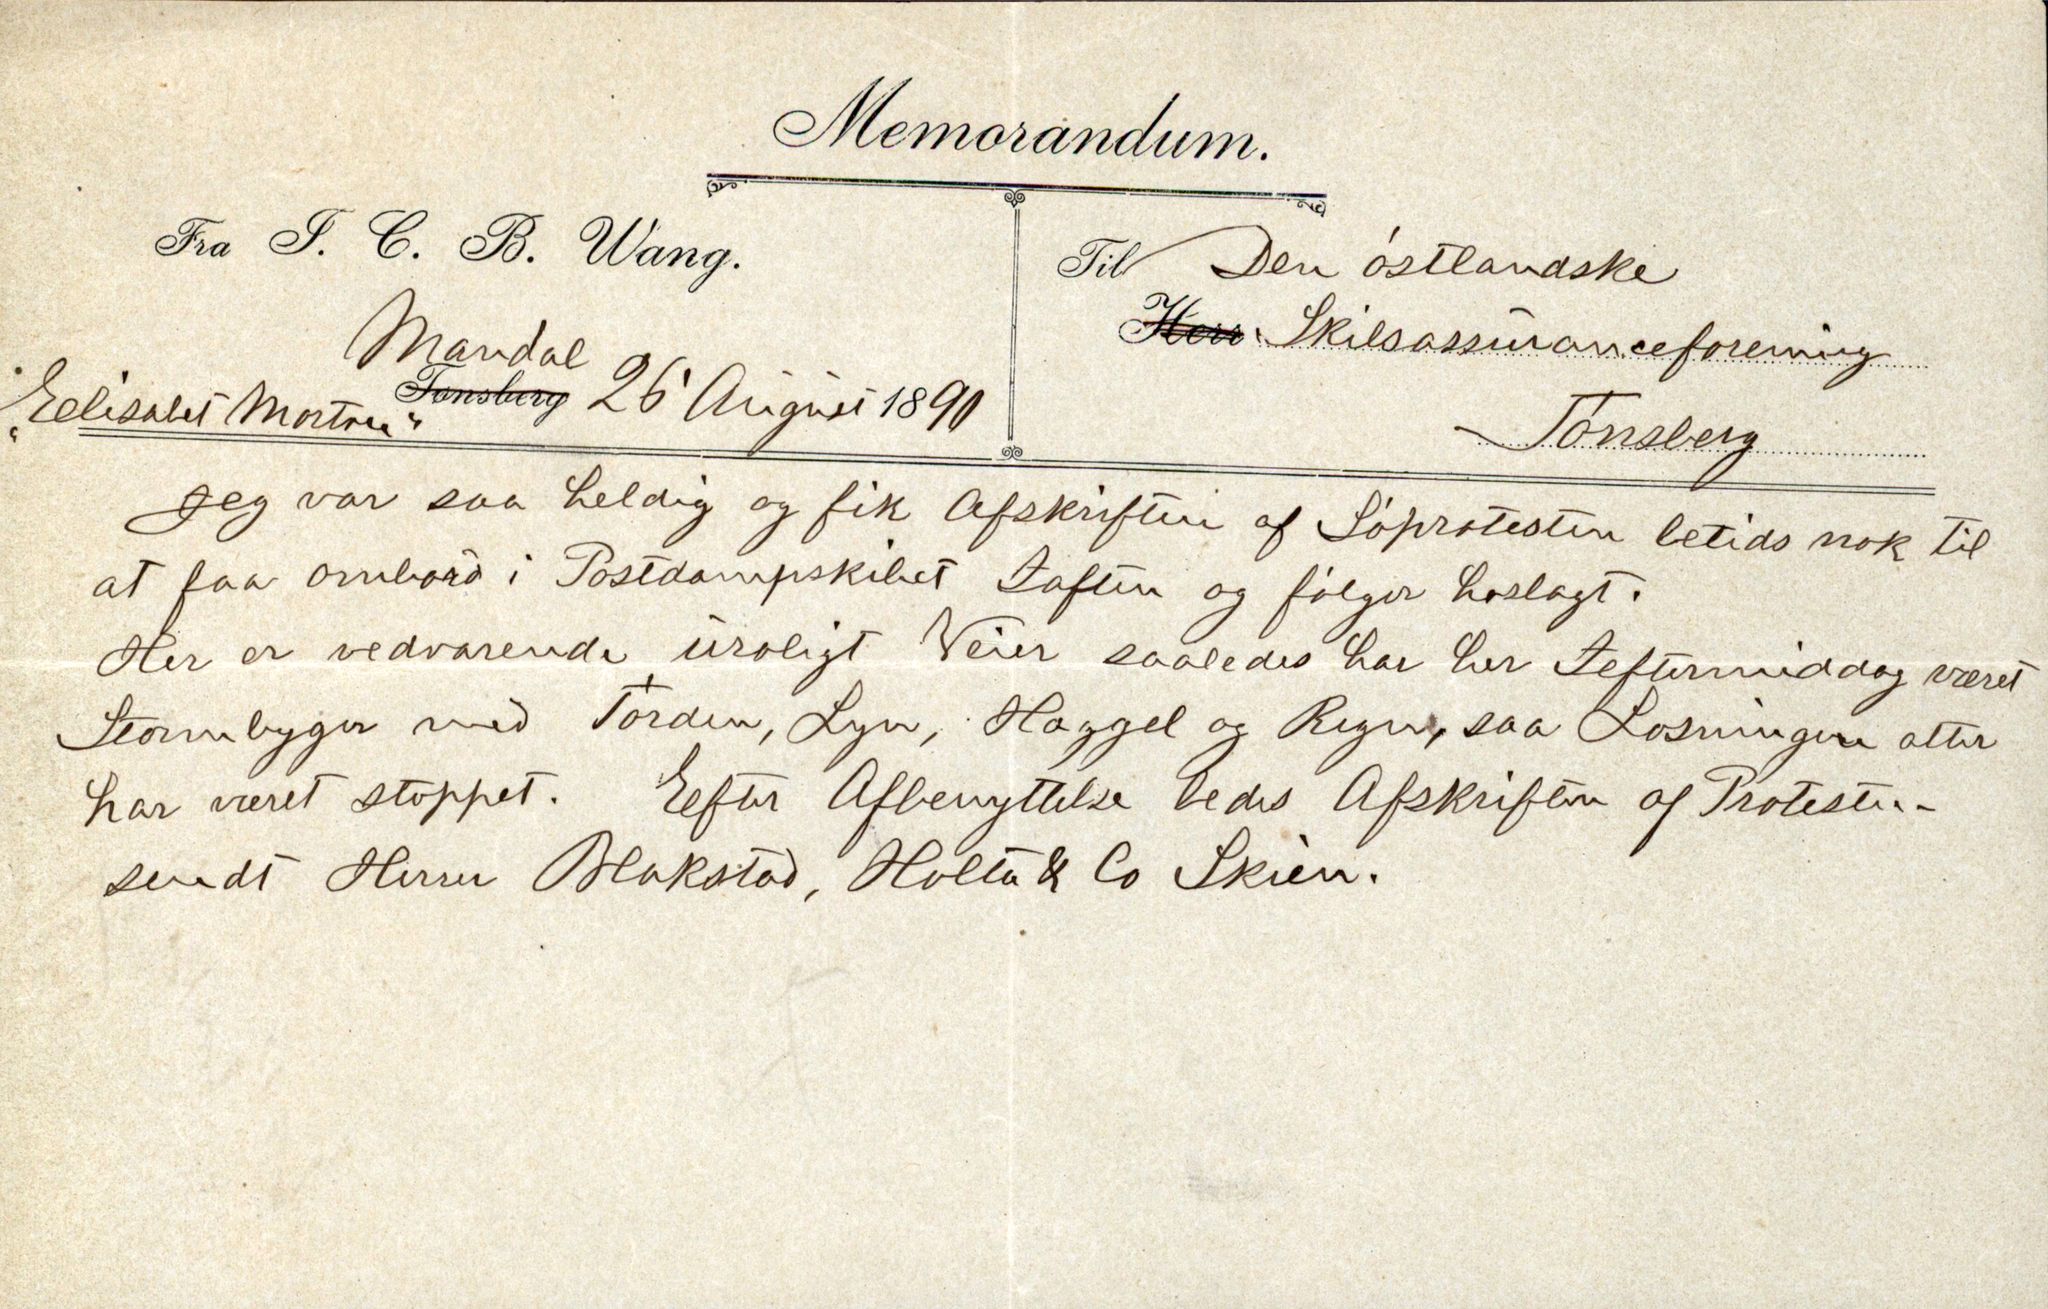 Memorandum.
Fra I. C. B. Wang.
Til Den östlandske
Herr Skibsassuranceforening
Mandal
Tønsberg 26 August 1890
"Elisabet Morton"
Tönsberg
Jeg var saa heldig og fik Afskriften af Söprotesten betids nok til
at faa ombord i Postdampskibet Iaften og fölger hoslagt.
Her er vedvarende uroligt Veier saaledes har her Ieftermiddag været
Stormbyger med Torden, Lyn, Haggel og Regn, saa Losningen atter
har været stoppet. Efter Afbenyttelse bedes Afskriften af Protesten
sendt Herrer Blakstad, Holta & Co Skien.